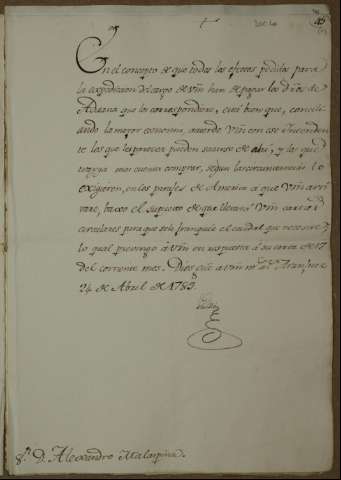 En el concepto de que todos los efectos pedidos para
la expedicion del cargo de Vm han de pagar los dros de
Aduana que les correspondiere, será bien que, concili
ando la mayor economia, acuerde Vm con ese Intenden
te los que les parezca pueden sacarse de ahi, y los que
tenga mas cuenta comprar, segun las circunstancias lo
exigieren, en los parajes de America à que Vm arri
vare, baxo el supuesto de que llevará Vm cartas
circulares para que se le franquee el caudal que necesite;
lo qual prevengo à Vm en respuesta à su carta de 17
del corriente mes. Dios gue à Vm ms as Aranjuez
24 de Abril de 1789.
Sr. D. Alexandro Malaspina.